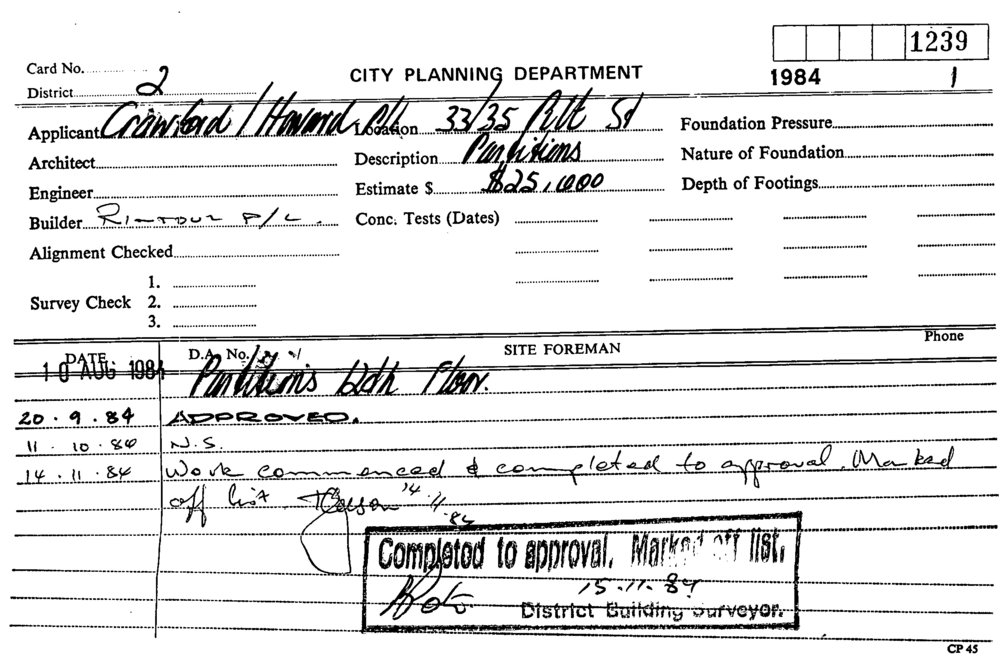 1239
Card No.
CITY PLANNING DEPARTMENT
1984 1
District 2
Applicant Crawford / Howard P/L Location 33/35 Pitt St Foundation Pressure
Architect Description Partitions Nature of Foundation
Engineer Estimate $ $25,000 Depth of Footings
Builder P/L. Conc. Tests (Dates)
Alignment Checked
1.
Survey Check 2.
3.
DATE D.A. No. SITE FOREMAN Phone
10 AUG 1984 Partitions Floor.
20.9.84 APPROVED.
11.10.84 N.S.
14.11.84 Work commenced & completed to approval. Marked
off list. 14.11.84
Completed to approval. Marked off list.
15.11.84
District Building Surveyor.
CP 45